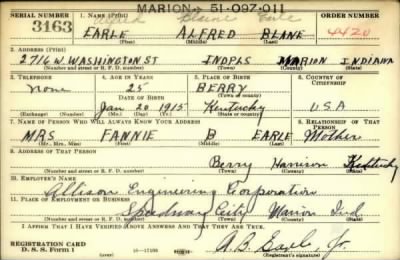 MARION - 51-097-011
SERIAL NUMBER 1. NAME (Print) Alfred Blaine Earle ORDER NUMBER
3163 EARLE ALFRED BLANE 4420
(First) (Middle) (Last)
2. ADDRESS (Print)
2716 W. WASHINGTON ST INDPLS MARION INDIANA
(Number and street or R. F. D. number) (Town) (County) (State)
3. TELEPHONE 4. AGE IN YEARS 5. PLACE OF BIRTH 6. COUNTRY OF CITIZENSHIP
none 25 BERRY
DATE OF BIRTH (Town or county)
Jan 20 1915 Kentucky U S A
(Exchange) (Number) (Mo.) (Day) (Yr.) (State or country)
7. NAME OF PERSON WHO WILL ALWAYS KNOW YOUR ADDRESS 8. RELATIONSHIP OF THAT PERSON
MRS FANNIE B EARLE Mother
(Mr., Mrs., Miss) (First) (Middle) (Last)
9. ADDRESS OF THAT PERSON
Berry Harrison Kentucky
(Number and street or R. F. D. number) (Town) (County) (State)
10. EMPLOYER'S NAME
Allison Engineering Corporation
11. PLACE OF EMPLOYMENT OR BUSINESS
Speedway City Marion Ind
(Number and street or R. F. D. number) (Town) (County) (State)
I AFFIRM THAT I HAVE VERIFIED ABOVE ANSWERS AND THAT THEY ARE TRUE.
REGISTRATION CARD
D. S. S. Form 1 16-17105 A.B. Earle, Jr.